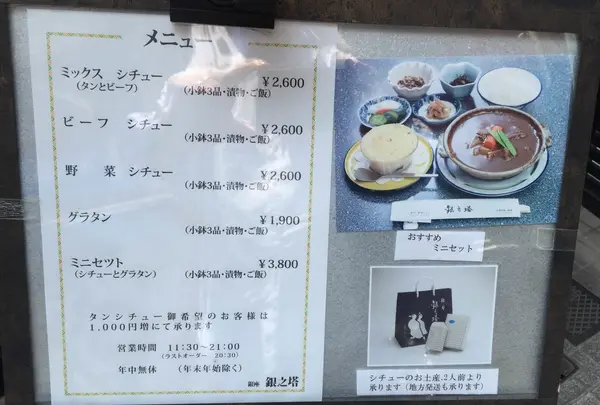 メニュー
ミックス シチュー
(タンとビーフ)
¥2,600
(小鉢3品・漬物・ご飯)
ビーフ シチュー
¥2,600
(小鉢3品・漬物・ご飯)
野 菜 シチュー
¥2,600
(小鉢3品・漬物・ご飯)
グラタン
¥1,900
(小鉢3品・漬物・ご飯)
ミニセット
(シチューとグラタン)
¥3,800
(小鉢3品・漬物・ご飯)
タンシチュー御希望のお客様は
1,000円増にて承ります
営業時間 11:30~21:00
(ラストオーダー 20:30)
年中無休 (年末年始除く)
銀座 銀之塔
銀之塔
おすすめ
ミニセット
銀之塔
シチューのお土産、2人前より
承ります(地方発送も承ります)